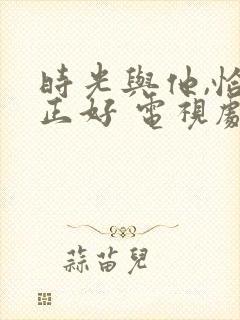 時光與他,恰
正好 電視劇
蒜苗兒